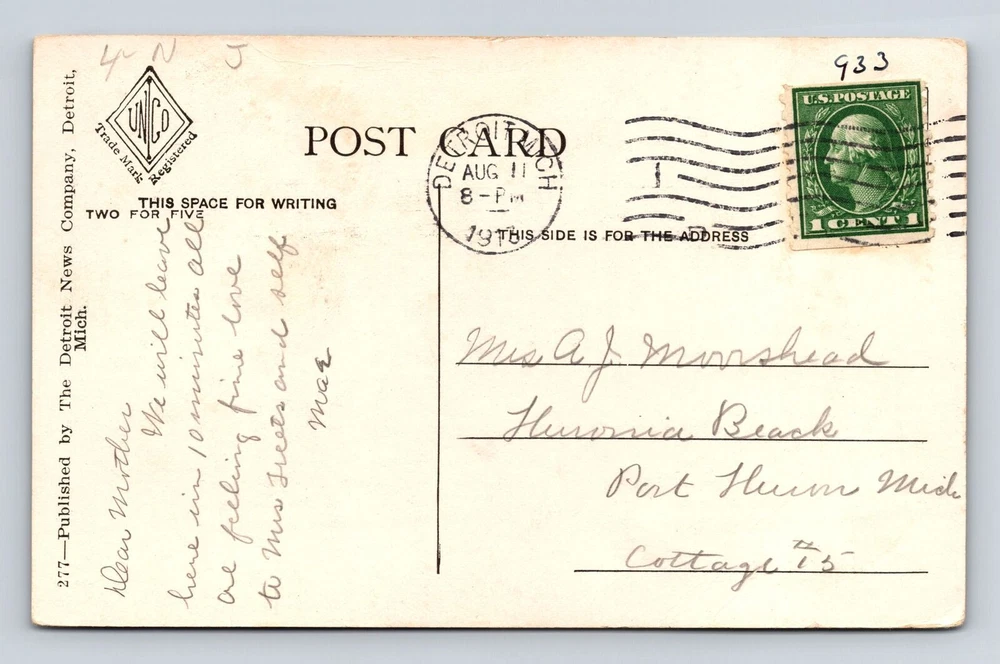 933
UNICO
Trade Mark Registered
POST CARD
DETROIT, MICH
AUG 11
8-PM
U.S. POSTAGE
1 CENT 1
THIS SPACE FOR WRITING
TWO FOR FIVE
THIS SIDE IS FOR THE ADDRESS
277—Published by The Detroit News Company, Detroit,
Mich.
Dear Mother
We will leave
here in 10 minutes all
are feeling fine love
to Mrs and self
Mae
Mrs A J Moorshead
Huronia Beach
Port Huron Mich
Cottage #15